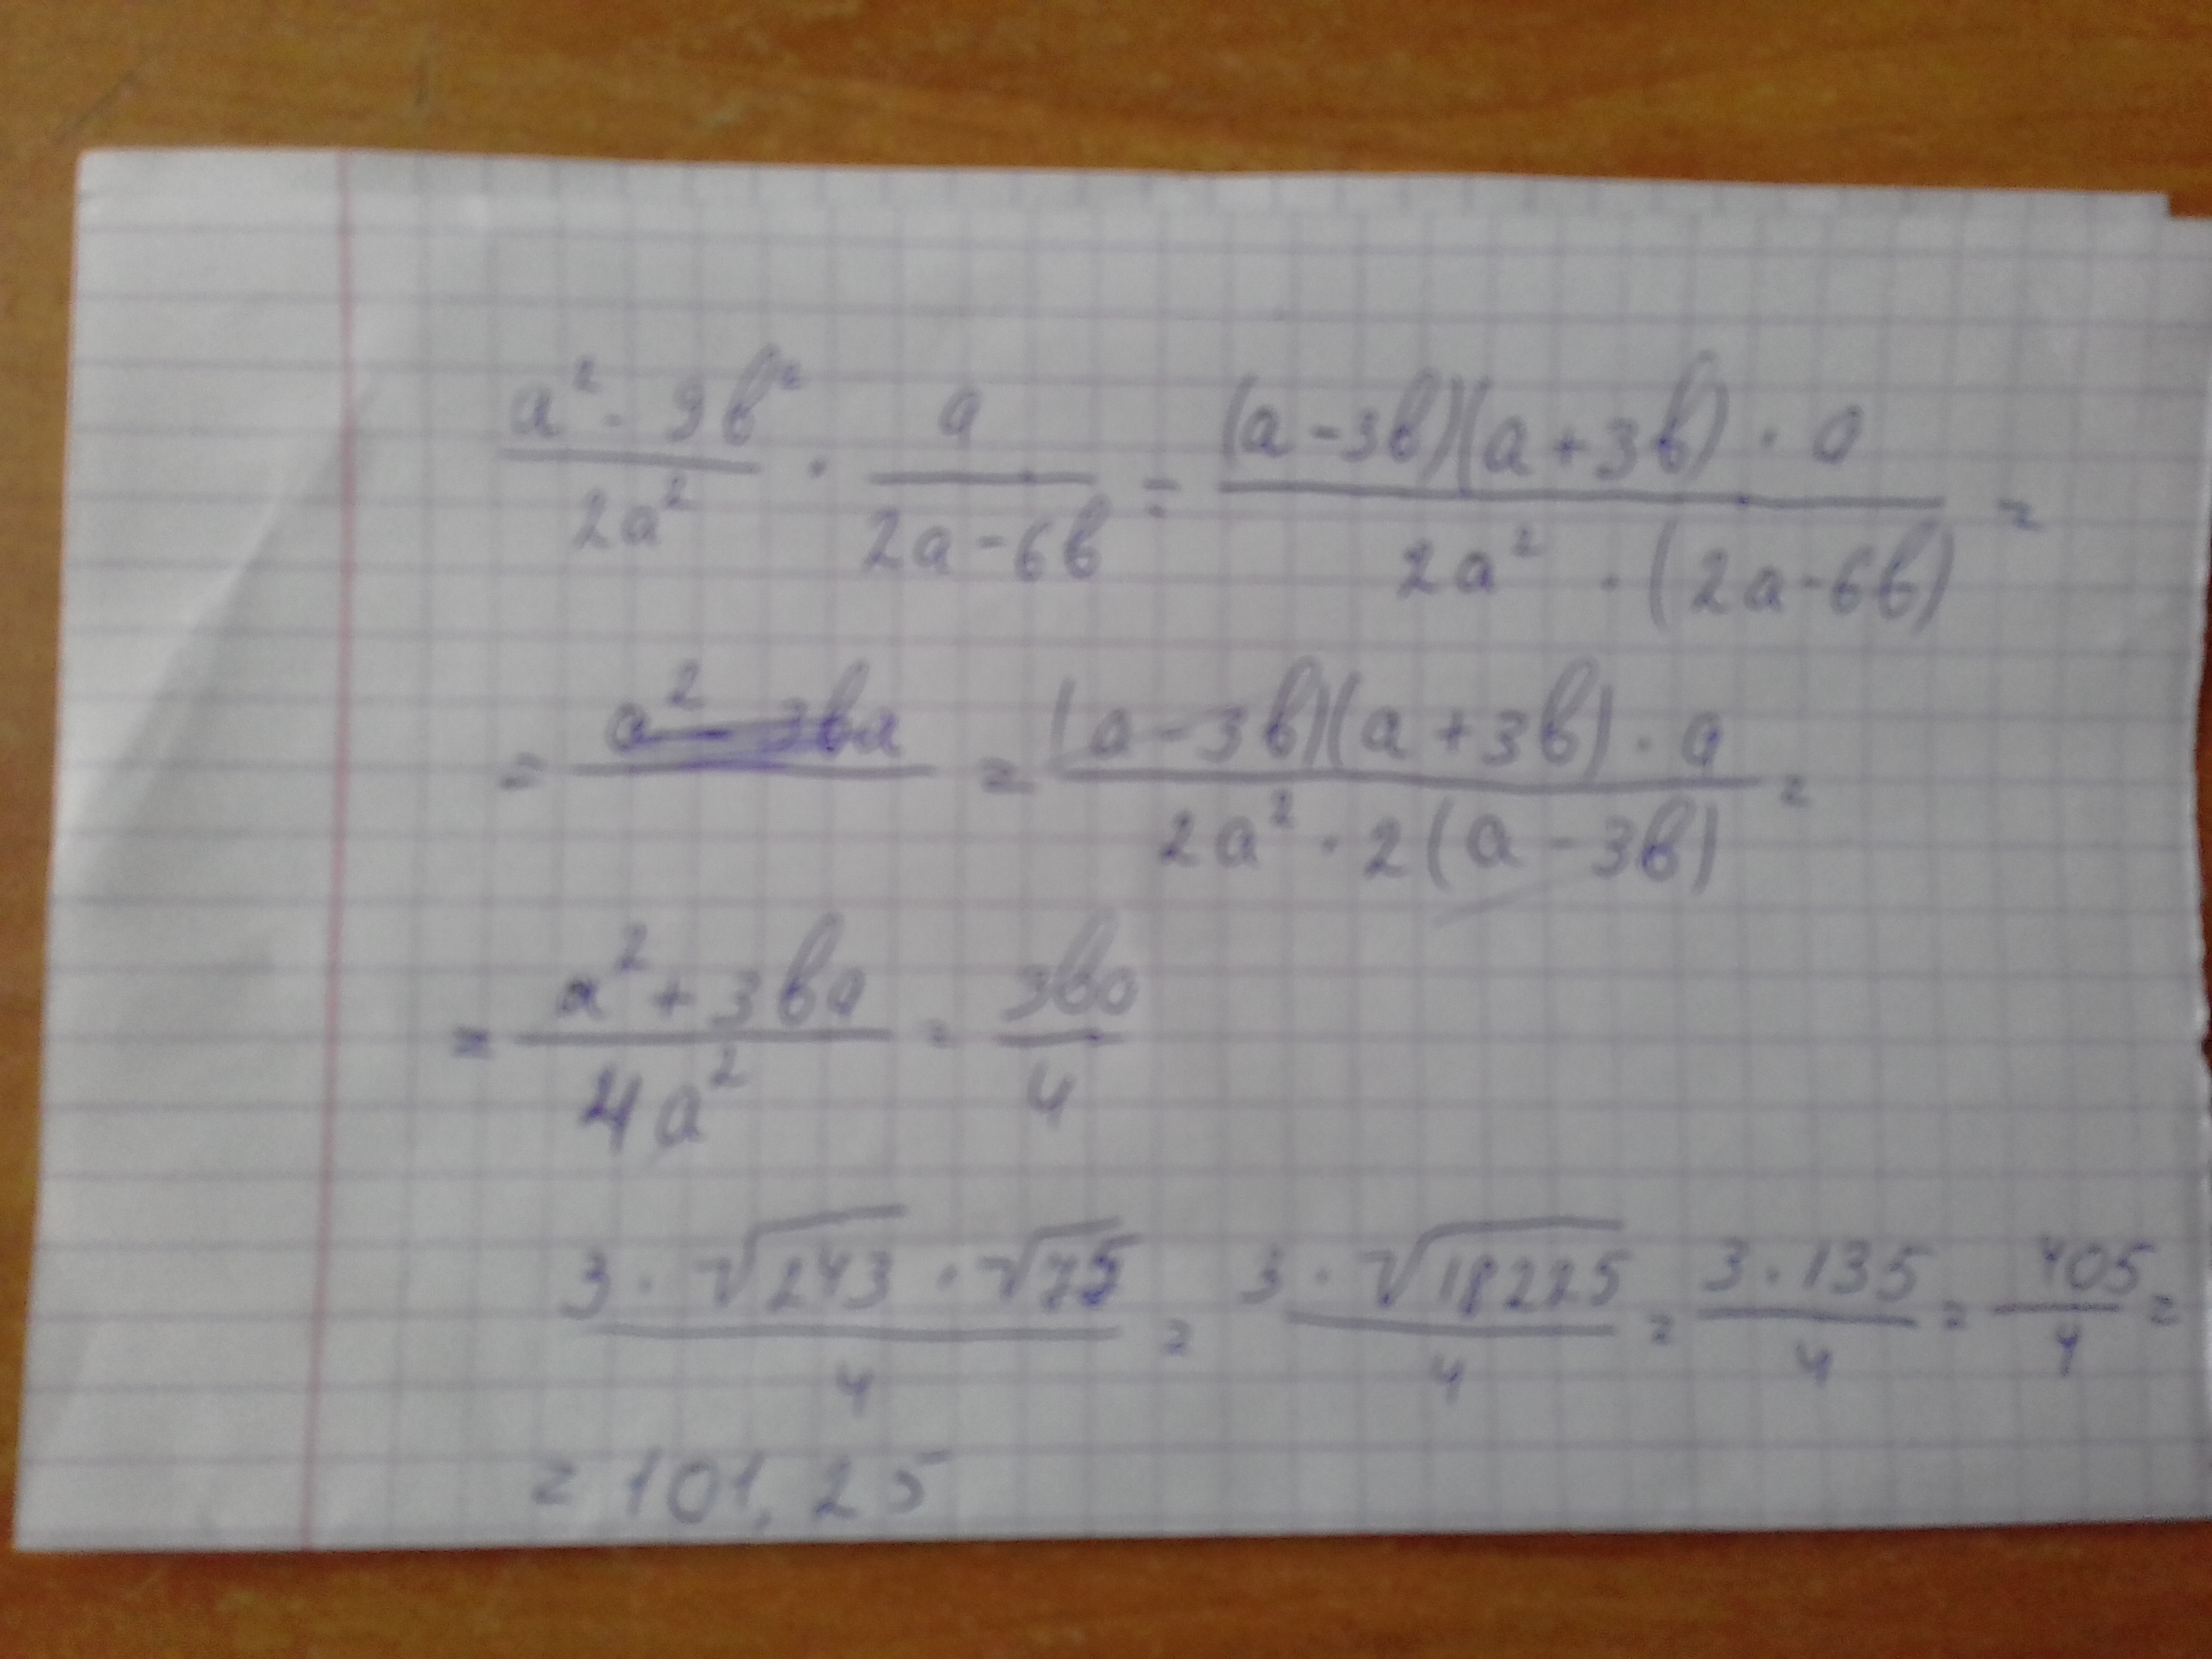 (a² - 9в²)/(2a²) · a/(2a-6в) = ((a-3в)(a+3в)·a)/(2a²·(2a-6в)) =
= a² - 3вa = ((a-3в)(a+3в)·a)/(2a²·2(a-3в)) =
= (a²+3вa)/(4a²) = 3вa/4
(3·√243·√75)/4 = (3·√18225)/4 = (3·135)/4 = 405/4 =
= 101,25